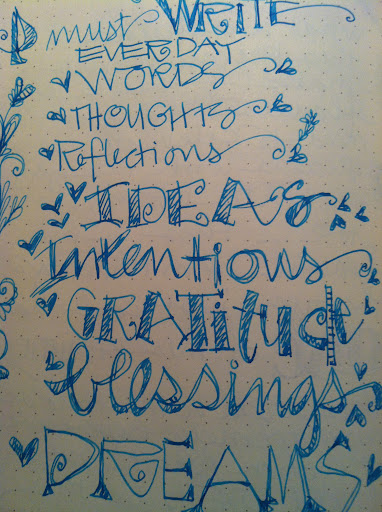 I must WRITE
EVERDAY
WORDS
THOUGHTS
Reflections
IDEAS
Intentions
GRATitude
blessings
DREAMS